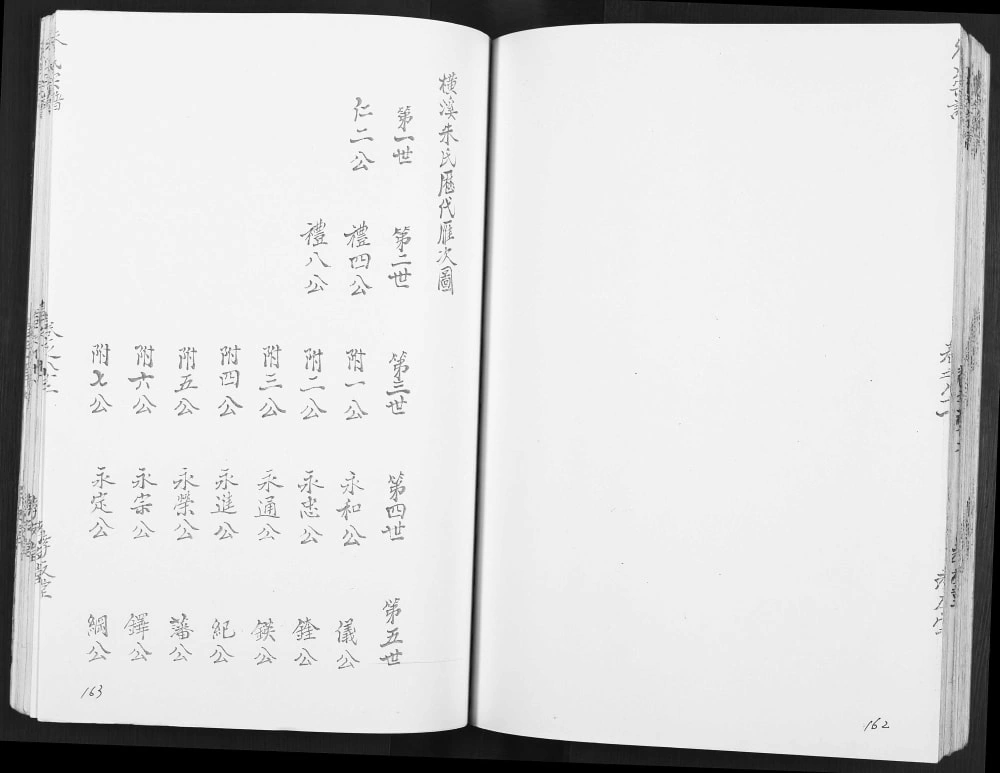 162
橫溪朱氏歷代雁次圖
第一世
仁二公
第二世
禮四公
禮八公
第三世
附一公
附二公
附三公
附四公
附五公
附六公
附七公
第四世
永和公
永忠公
永通公
永進公
永榮公
永宗公
永定公
第五世
儀公
銓公
鍈公
紀公
藩公
鐸公
綱公
163